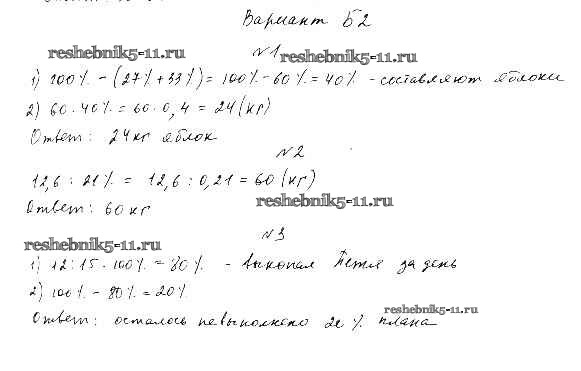 Вариант Б2
reshebnik5-11.ru
№1
1) 100% - (27% + 33%) = 100% - 60% = 40% - составляют яблоки
2) 60 · 40% = 60 · 0,4 = 24 (кг)
Ответ: 24 кг яблок
№2
12,6 : 21% = 12,6 : 0,21 = 60 (кг)
reshebnik5-11.ru
Ответ: 60 кг
№3
reshebnik5-11.ru
1) 12 : 15 · 100% = 80% - выкопал Петя за день
2) 100% - 80% = 20%
reshebnik5-11.ru
Ответ: осталось невыполнено 20% плана